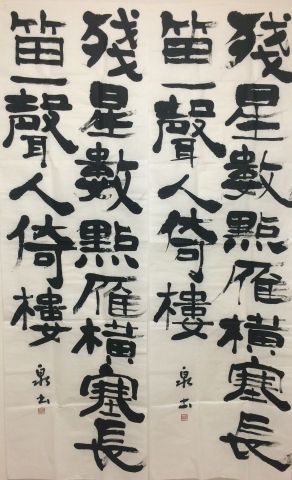 殘星數點雁橫塞長
笛一聲人倚樓
泉书
殘星數點雁橫塞長
笛一聲人倚樓
泉书